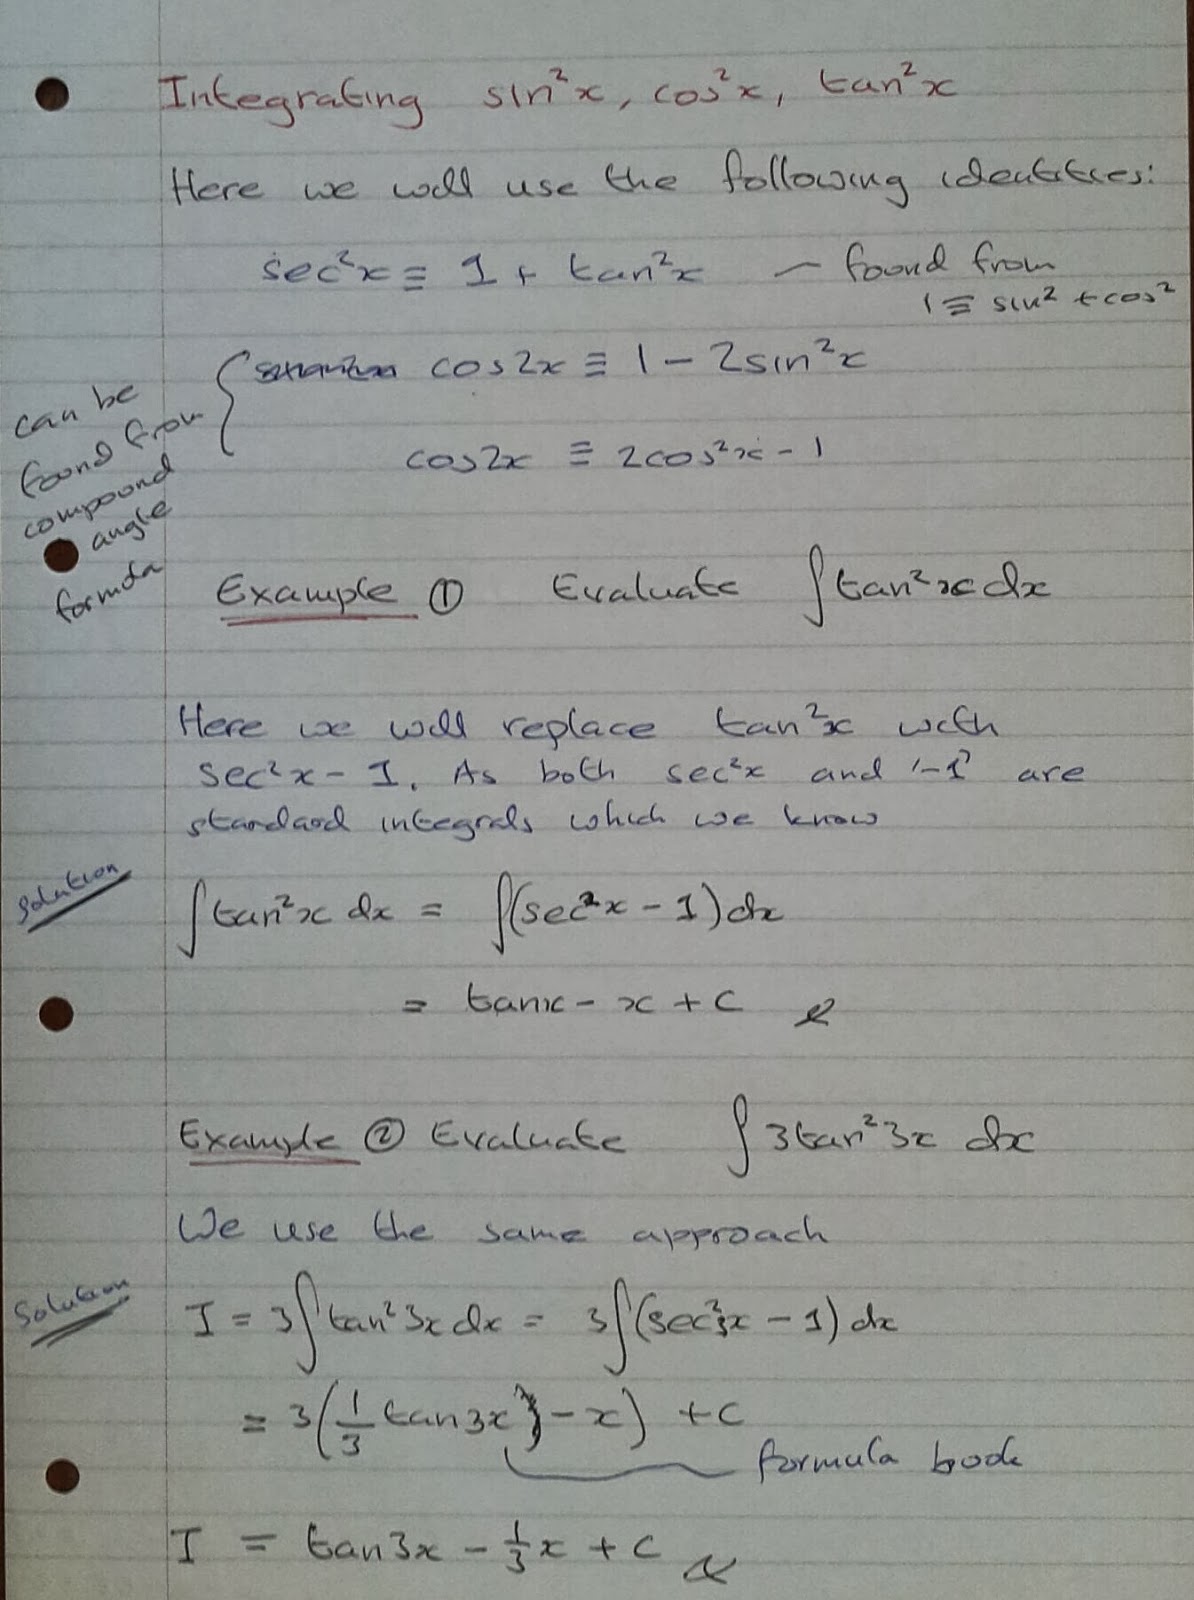 Integrating sin²x, cos²x, tan²x
Here we will use the following identities:
sec²x ≡ 1 + tan²x — found from
1 ≡ sin² + cos²
cos2x ≡ 1 - 2sin²x
cos2x ≡ 2cos²x - 1
can be
found from
compound
angle
formula
Example ① Evaluate ∫tan²x dx
Here we will replace tan²x with
sec²x - 1. As both sec²x and '-1' are
standard integrals which we know
Solution
∫tan²x dx = ∫(sec²x - 1)dx
= tanx - x + C
Example ② Evaluate ∫3tan²3x dx
We use the same approach
Solution
I = 3∫tan²3x dx = 3∫(sec²3x - 1)dx
= 3(1/3 tan3x - x) + C
formula book
I = tan3x - 1/3 x + C